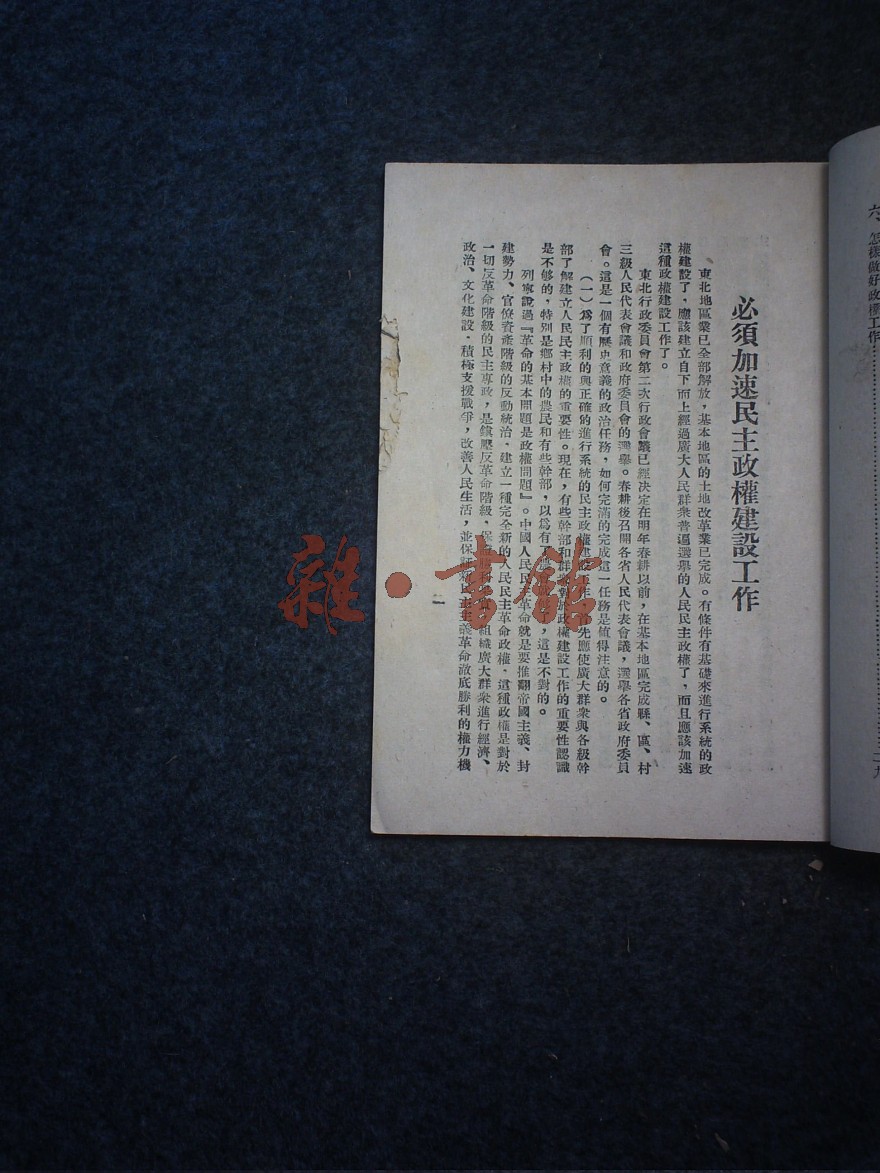 六、怎樣做好政權工作……………………二九
必須加速民主政權建設工作
東北地區業已全部解放，基本地區的土地改革業已完成。有條件有基礎來進行系統的政
權建設了，應該建立自下而上經過廣大人民群衆普遍選舉的人民民主政權了，而且應該加速
這種政權建設工作了。
東北行政委員會第二次行政會議已經決定在明年春耕以前，在基本地區完成縣、區、村
三級人民代表會議和政府委員會的選舉。春耕後召開各省人民代表會議，選舉各省政府委員
會。這是一個有歷史意義的政治任務，如何完滿的完成這一任務是値得注意的。
（一）爲了順利的與正確的進行系統的民主政權建設工作，首先應使廣大群衆與各級幹
部了解建立人民民主政權的重要性。現在，有些幹部和群衆對於政權建設工作的重要性認識
是不够的，特別是鄉村中的農民和有些幹部，以爲有了，這是不對的。
列寧說過『革命的基本問題是政權問題』。中國人民民主革命就是要推翻帝國主義、封
建勢力、官僚資產階級的反動統治，建立一種完全新的人民民主革命政權，這種政權是對於
一切反革命階級的民主專政，是鎮壓反革命階級，保組織廣大群衆進行經濟、
政治、文化建設，積極支援戰爭，改善人民生活，並保證新民主主義革命澈底勝利的權力機
一
雜·書館